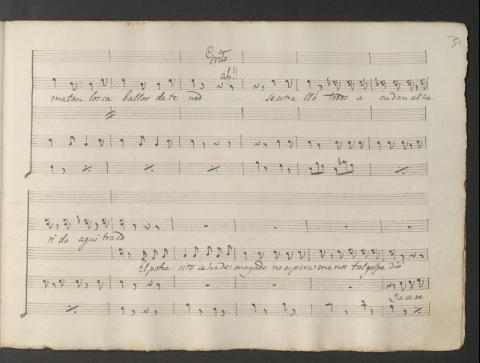 Grito
ah!!
matan los ca ballos de te ned se estre lló todos a cudan al he
ri do aqui traed
El pobre cito se ha des mayado no es para menos tal golpe dio